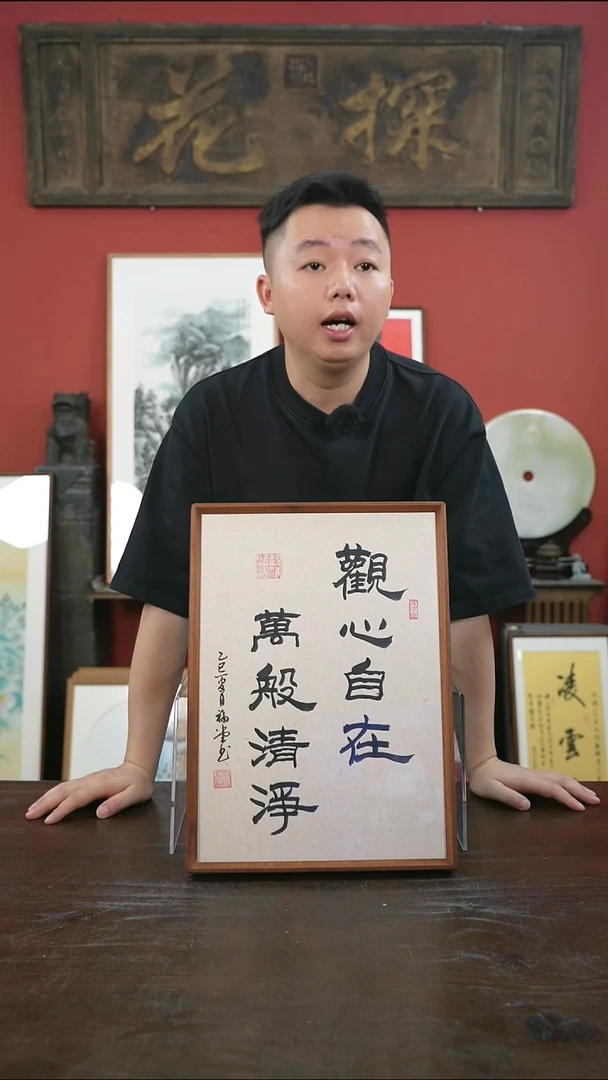 探花
觀心自在
萬般清淨
乙巳夏月
凌雲